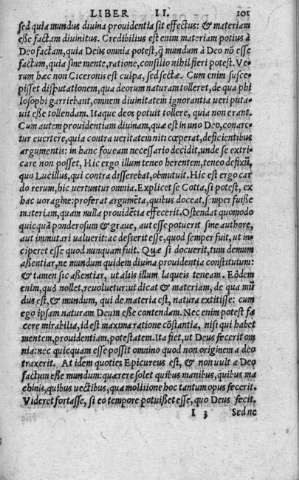 LIBER II. 101
sed quia mundus diuina prouidentia sit effectus: & materiam
esse factam diuinitus. Credibilius est enim materiam potius à
Deo factam, quia Deus omnia potest, q̃ mundam à Deo nō esse
factum, quia sine mente, ratione, consilio nihil fieri potest. Ve
rum hæc non Ciceronis est culpa, sed sectæ. Cum enim susce-
pisset disputationem, qua deorum naturam tolleret, de qua phi
losophi garriebant, omnem diuinitatem ignorantia ueri puta-
uit esse tollendam. Itaque deos potuit tollere, quia non erant.
Cum autem prouidentiam diuinam, quæ est in uno Deo, conare-
tur euertere, quia contra ueritatem niti cœperat, deficientibus
argumentis: in hanc foueam necessario decidit, unde se exti
care non posset. Hic ergo illum teneo herentem, teneo defixū,
quo Lucilius, qui contra disserebat, obmutuit. Hic est ergo car
do rerum, hic uertuntur omnia. Explicet se Cotta, si potest, ex
hac uoragine: proferat argumēta, quibus doceat, semper fuisse
materiam, quam nulla prouidētia effecerit. Ostendat quomodo
quicquā ponderosum & graue, aut esse potuerit sine authore,
aut immutari ualuerit: ac desierit esse, quod semper fuit, ut in-
ciperet esse quod nunquam fuit. Quæ si docuerit, tum demum
assentiar, ne mundum quidem diuina prouidentia constitutum:
& tamen sic assentiar, ut alijs illum laqueis teneam. Eòdem
enim, quò nollet, reuoluetur: ut dicat & materiam, de qua mū
dus est, & mundum, qui de materia est, natura extitisse: cum
ego ipsam naturam Deum esse contendam. Nec enim potest fa
cere mirabilia, id est maxima ratione cōstantia, nisi qui habet
mentem, prouidentiam, potestatem. Ita fiet, ut Deus fecerit om
nia: nec quicquam esse possit omnino quod non originem à deo
traxerit. At idem quoties Epicureus est, & non uult à Deo
factum esse mundum: quærere solet quibus manibus, quibus ma
chinis, quibus uectibus, qua molitione hoc tantum opus fecerit.
Videret fortasse, si eo tempore potuisset esse, quo Deus fecit.
I 3 Sed ne